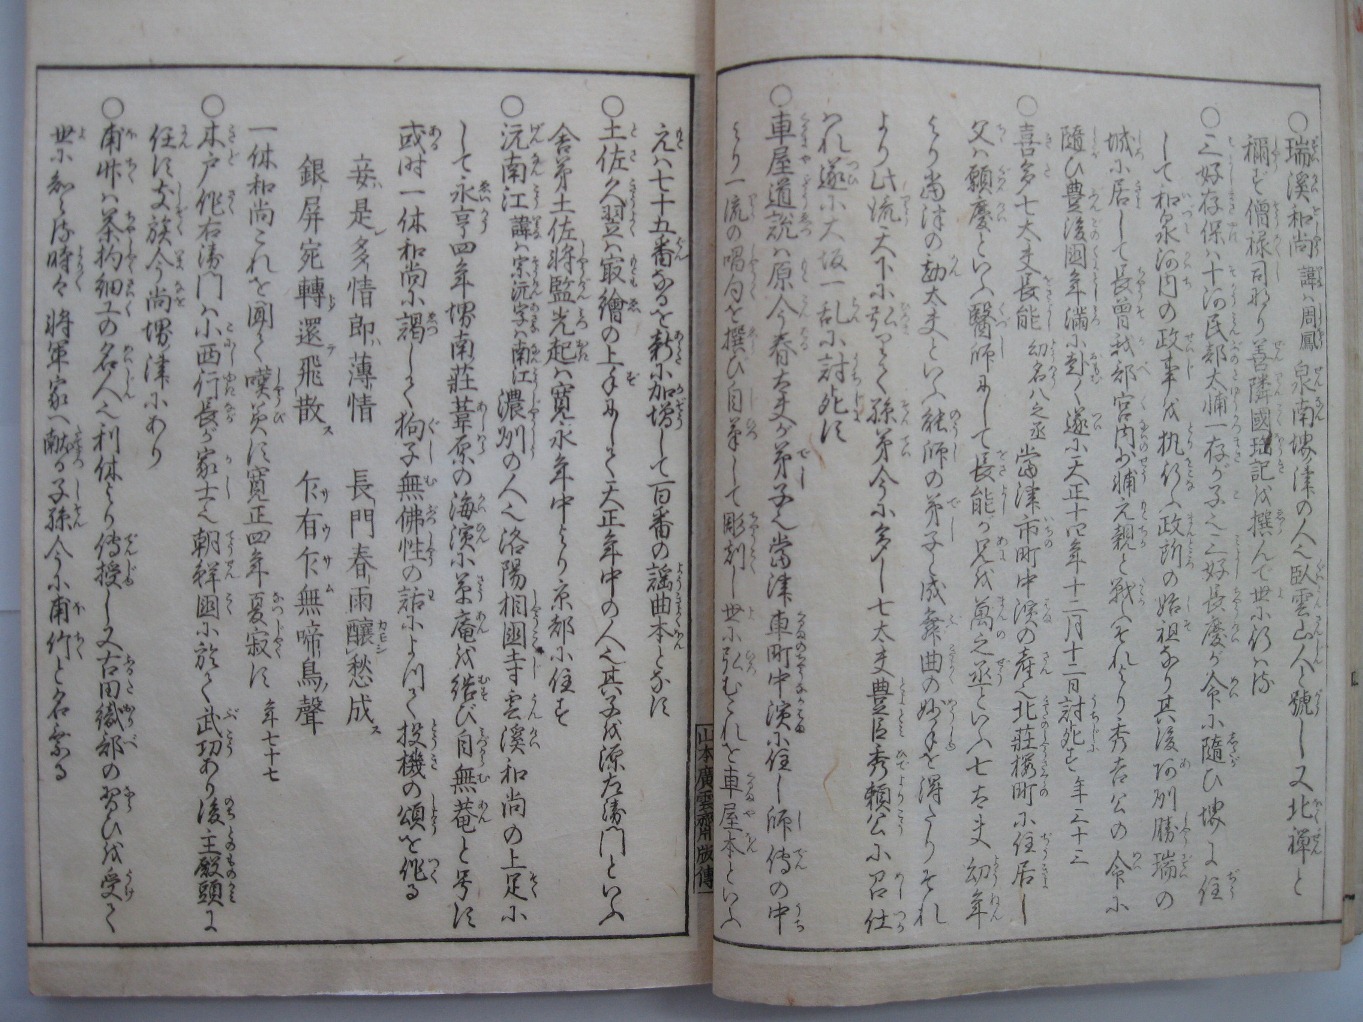 ○瑞溪和尚 諱ハ周鳳 泉南堺津の人也臥雲山人と號し又北禪と
稱ず僧祿司なり善隣國瑞記を撰んで世に行はる
○三好存保ハ十河民部大輔一存が子也三好長慶が令に隨ひ堺に住
して和泉河内の政事を執行ふ政所の始祖なり其後阿刕勝瑞の
城に居して長曾我部宮内少輔元親と戰ハそれより秀吉公の令に
隨ひ豊後國年滿に赴く遂に天正十四年十二月十二日討死す 年三十三
○喜多七太夫長能 幼名八之丞 當津市町中濱の産也北莊櫻町に住居し
父ハ願慶といふ醫師にして長能が兄を萬之丞といふ七太夫幼年
より當津の勘太夫といふ能師の弟子と成舞曲の妙手を得たりそれ
より此流天下に弘りて孫弟今に多し七太夫豊臣秀頼公に召仕
はれ遂に大坂一乱に討死す
○車屋道説ハ原今春太夫が弟子也當津車町中濱に住し師傳の中
より一流の唱句を撰ひ自筆して彫刻し世に弘むこれを車屋本といふ
山本廣雲齋版傳
元ハ七十五番なるを新に加増して百番の謡曲本となす
○土佐久翌ハ㝡繪の上手にして天正年中の人也其子を源左衛門といふ
舎弟土佐将監光起ハ寛永年中より京都に住す
○沅南江 諱ハ宗沅字ハ南江 濃刕の人也洛陽相國寺雲溪和尚の上足に
して永享四年堺南莊葦原の海濱に草庵を結び自無菴と号す
或时一休和尚に謁して狗子無佛性の話によつて投機の頌を作る
妾是多情郎薄情 長門春雨釀愁成
銀屏宛轉還飛散 乍有乍無啼鳥聲
一休和尚これを聞て嘆美す寛正四年夏寂す 年七十七
○木戸作右衛門ハ小西行長が家士也朝鮮國に於て武功あり後主殿頭に
任ず支族今尚堺津にあり
○甫竹ハ茶杓細工の名人也利休より傳授し又古田織部の習ひを受て
世に知らる時々将軍家へ献る子孫今に甫竹と名乗る